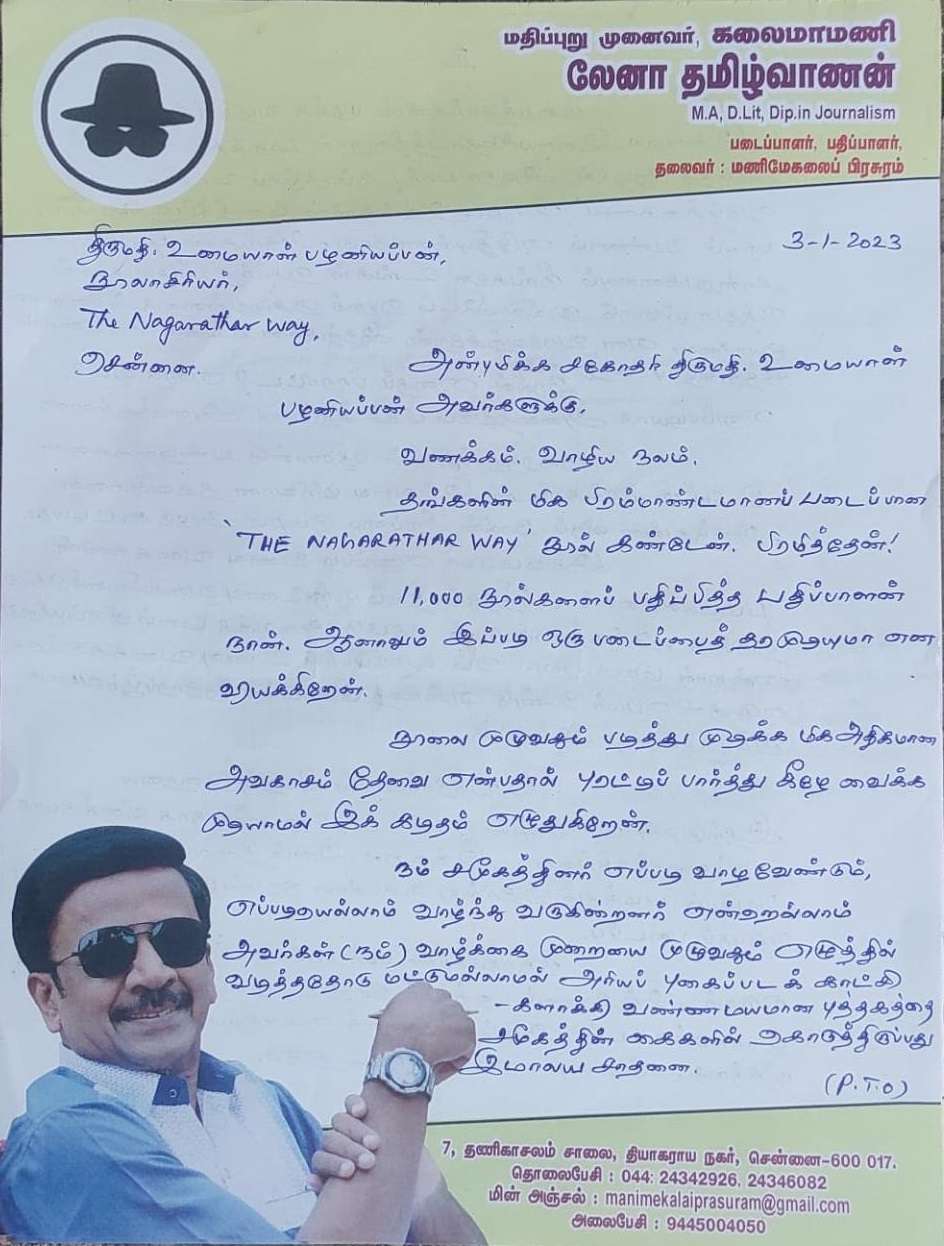 மதிப்புறு முனைவர், கலைமாமணி
லேனா தமிழ்வாணன்
M.A, D.Lit, Dip.in Journalism
படைப்பாளர், பதிப்பாளர்,
தலைவர் : மணிமேகலைப் பிரசுரம்
3-1-2023
திருமதி. உமையாள் பழனியப்பன்,
நூலாசிரியர்,
The Nagarathar Way,
சென்னை.
அன்புமிக்க சகோதரி திருமதி. உமையாள்
பழனியப்பன் அவர்களுக்கு,
வணக்கம். வாழிய நலம்.
தங்களின் மிக பிரம்மாண்டமானப் படைப்பான
'THE NAGARATHAR WAY' நூல் கண்டேன். பிரமித்தேன்!
11,000 நூல்களைப் பதிப்பித்த பதிப்பாளன்
நான். ஆனாலும் இப்படி ஒரு படைப்பைத் தரமுடியுமா என
வியக்கிறேன்.
நூலை முழுவதும் படித்து முடிக்க மிக அதிகமான
அவகாசம் தேவை என்பதால் புரட்டிப் பார்த்து கீழே வைக்க
முடியாமல் இக் கடிதம் எழுதுகிறேன்.
நம் சமூகத்தினர் எப்படி வாழவேண்டும்,
எப்படியெல்லாம் வாழ்ந்து வருகின்றனர் என்றெல்லாம்
அவர்கள் (நம்) வாழ்க்கை முறையை முழுவதும் எழுத்தில்
வடித்ததோடு மட்டுமல்லாமல் அரியப் புகைப்படக் காட்சி
-களாக்கி வண்ணமயமான புத்தகத்தை
சமூகத்தின் கைகளில் கொடுத்திருப்பது
இமாலய சாதனை.
(P.T.O)
7, தணிகாசலம் சாலை, தியாகராய நகர், சென்னை-600 017.
தொலைபேசி : 044: 24342926, 24346082
மின் அஞ்சல் : manimekalaiprasuram@gmail.com
அலைபேசி : 9445004050